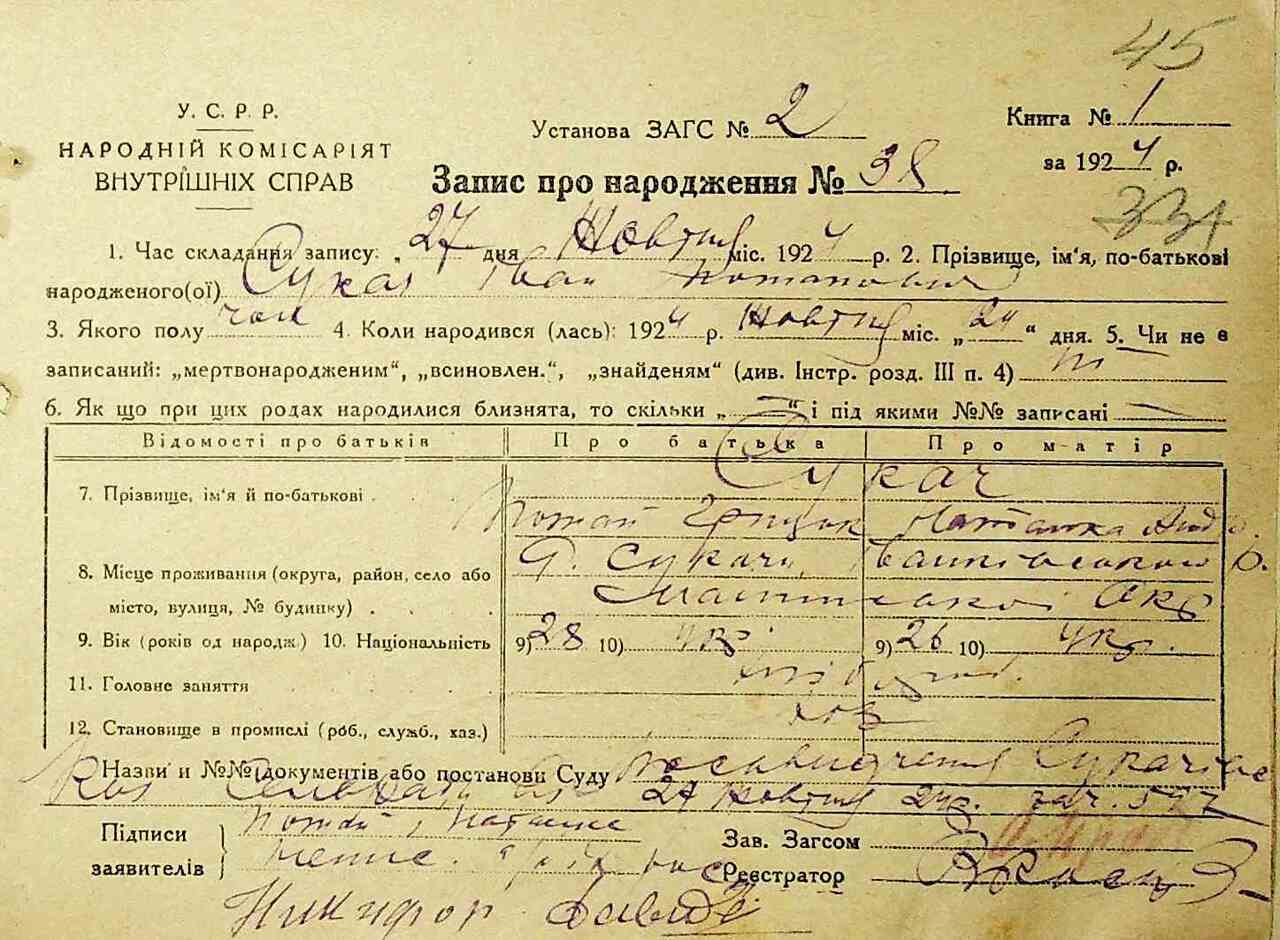 45
У. С. Р. Р.
НАРОДНІЙ КОМІСАРІЯТ
ВНУТРІШНІХ СПРАВ
Установа ЗАГС № 2
Книга № 1
за 1924 р.
Запис про народження № 38
331
1. Час складання запису: „ 27 дня Жовтня міс. 1924 р. 2. Прізвище, ім'я, по-батькові
народженого(ої) Сукач Іван Потапович
3. Якого полу чол 4. Коли народився (лась): 1924 р. Жовтня міс. „24“ дня. 5. Чи не є
записаний: „мертвонародженим“, „всиновлен.“, „знайденям“ (див. Інстр. розд. III п. 4)
6. Як що при цих родах народилися близнята, то скільки „ — “ і під якими №№ записані —
Відомості про батьків Про батька Про матір
7. Прізвище, ім'я й по-батькові Сукач
Потап Грицьк Наталка
8. Місце проживання (округа, район, село або
місто, вулиця, № будинку) С. Сукачі
Окр
9. Вік (років од народж.) 10. Національність 9) 28 10) укр. 9) 26 10) укр.
11. Головне заняття
12. Становище в промислі (роб., служб., хаз.) хаз
Назви и №№ документів або постанови Суду Посвидчення Сукачівс
кої Сельради від 27 Жовтня 24 р. за ч. 527
Підписи
заявителів
Потап, Наталка
непис.
Никифор
Зав. Загсом
Реєстратор